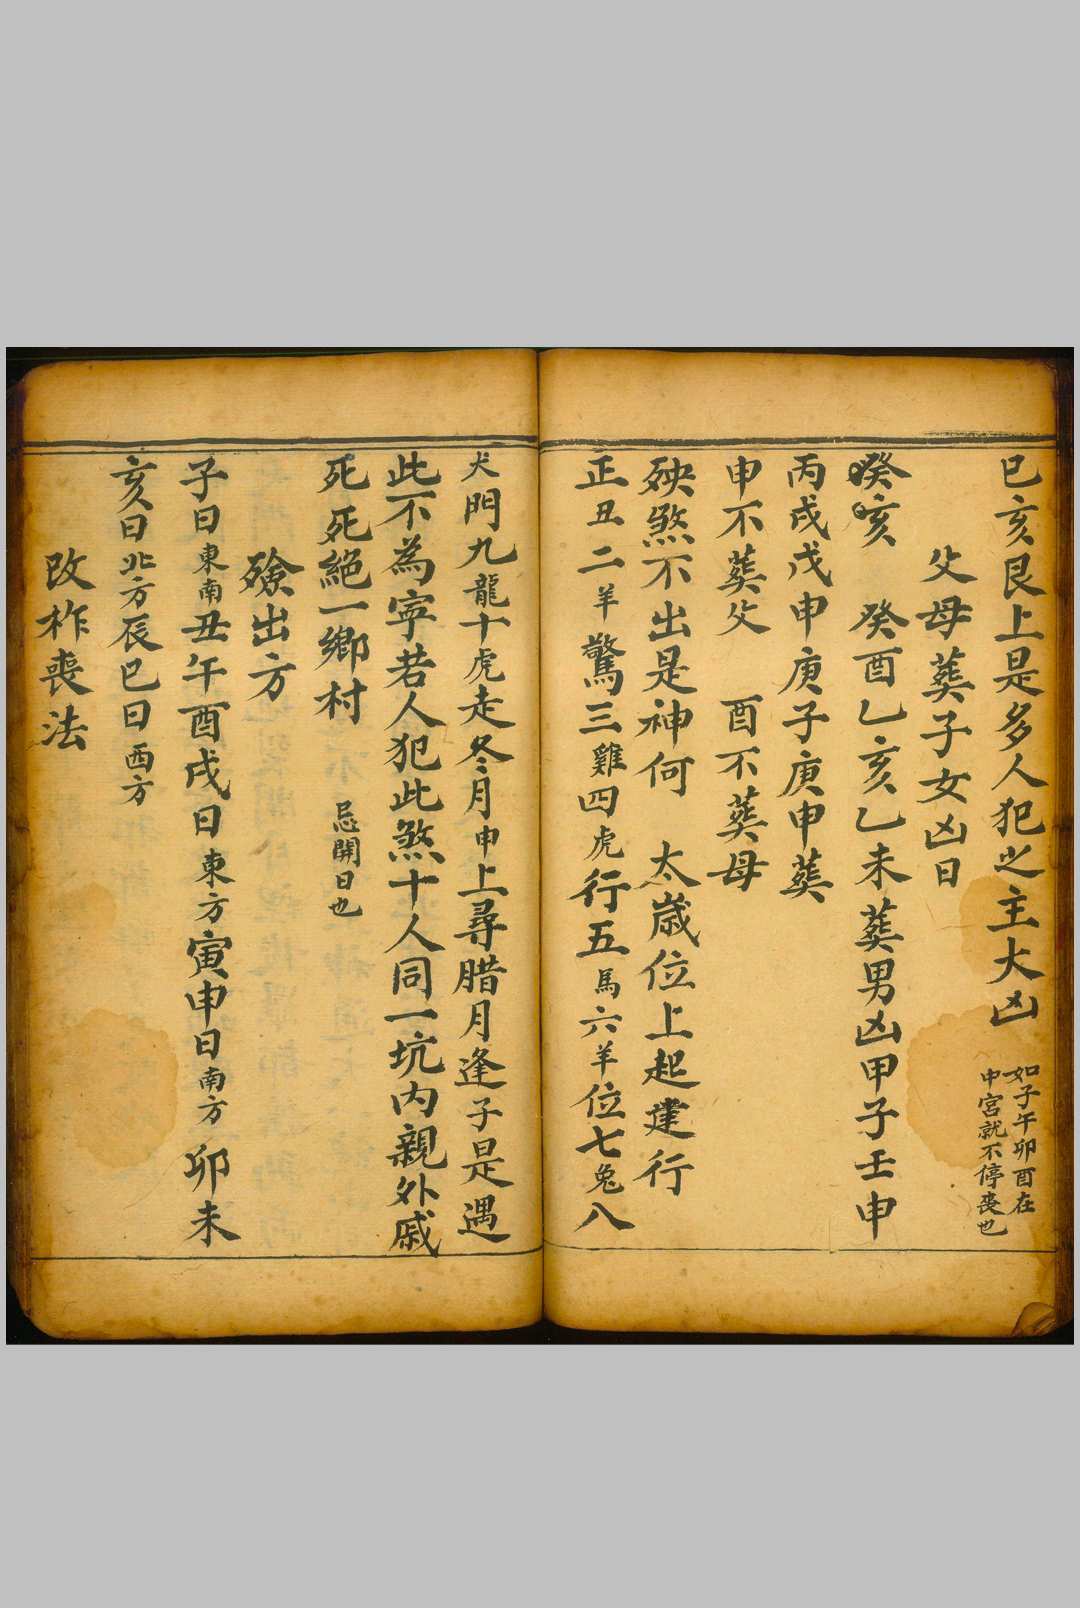 巳亥艮上是多人犯之主大凶 如子午卯酉在
中宮就不停喪也
父母葬子女凶日
癸亥 癸酉乙亥乙未葬男凶甲子壬申
丙戌戊申庚子庚申葬
申不葬父 酉不葬母
殃煞不出是神何 太歲位上起建行
正丑二羊驚三雞四虎行五馬六羊位七兔八
犬門九龍十虎走冬月申上尋腊月逢子是遇
此不為寧若人犯此煞十人同一坑內親外戚
死死絕一鄉村 忌開日也
殮出方
子日東南丑午酉戌日東方寅申日南方卯未
亥日北方辰巳日西方
改柞喪法